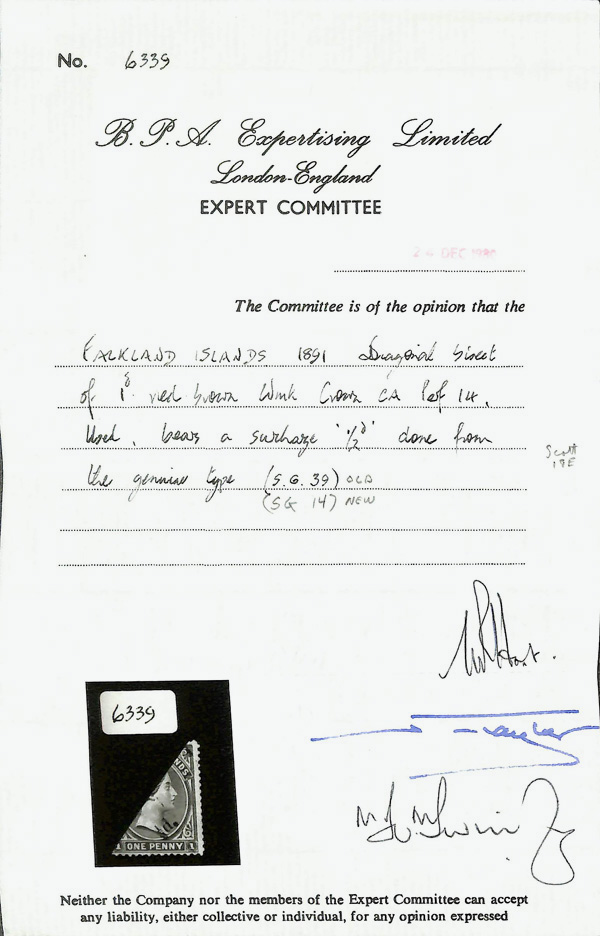 No. 6339
B. P. A. Expertising Limited
London-England
EXPERT COMMITTEE
24 DEC
The Committee is of the opinion that the
FALKLAND ISLANDS 1891 Diagonal bisect
of 1d red-brown Wmk Crown CA Perf 14.
Used, bears a surcharge '½d' done from
the genuine type (S.G. 39) OLD
(SG 14) NEW
Scott
19E
6339
NDS
1 ONE PENNY 1
Neither the Company nor the members of the Expert Committee can accept
any liability, either collective or individual, for any opinion expressed